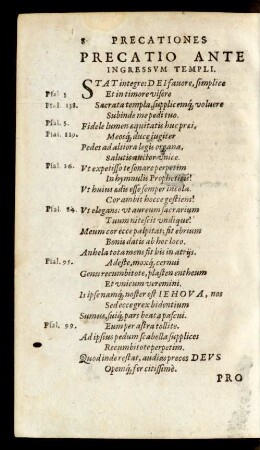 8 PRECATIONES
PRECATIO ANTE
INGRESSVM TEMPLI.
STAT integre: DEI fauore, simplice
Psal. 5 Et in timore visere
Psal. 138. Sacrata templa, supplicemq́, voluere
Subinde me pedi tuo.
Psal. 5. Fidele lumen equitatis huc prei,
Psal. 119. Meosq́, duce iugiter
Pedes ad altiora legis organa,
Salutis anitor vnice.
Psal. 26. Vt expetisso te sonare perpetim
In hymnulis Propheticis!
Vt huius ædis esse semper incola
Cor ambit hocce gestiens!
Psal. 84. Vt elegans: vt aureum sacrarium
Tuum nitescit vndique!
Meum cor ecce palpitat: fit ebrium
Bonis datis ab hoc loco.
Anhela tota mens fit bis in atrijs.
Psal. 95. Adeste, moxq́, cernui
Genu recumbitote, plasten entheum
Et vnicum veremini.
Is ipse namq́, noster est IEHOVA, nos
Sed ecce grex bidentium
Sumus, suiq́, pars beata pascui.
Psal. 99. Eum per astra tollite.
Ad ipsius pedum scabella supplices
Recumbitote perpetim.
Quod inde restat, audias preces DEVS
Opemq́, fer citissimè.
PRO